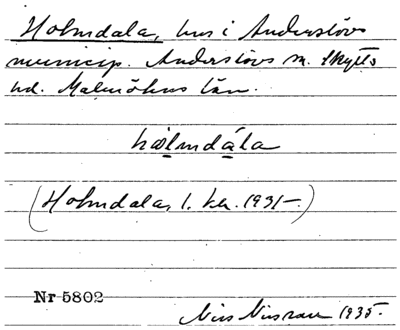 Holmdala, hus i Anderslövs
municip. Anderslövs sn. Skytts
hd. Malmöhus län.
hålmdála
(Holmdala, l. kh. 1931–.)
Nr 5802
Nils Nilsson 1935.